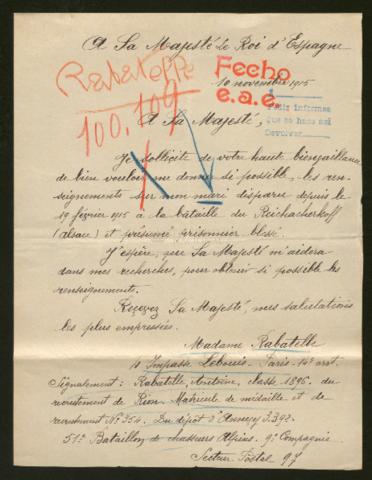 A Sa Majesté Le Roi d'Espagne
Rabatelle
Fecho
10 novembre 1915
e.a.e.
100.109
Pedir informes
que se hace así
Devolver
A Sa Majesté,
Je sollicite de votre haute bienveillance
de bien vouloir me donner si possible, les ren-
seignements sur mon mari disparu depuis le
19 février 1915 à la bataille du Reichackerkopf
(Alsace) et présumé prisonnier blessé.
J'espère, que Sa Majesté m'aidera
dans mes recherches, pour obtenir si possible les
renseignements.
Recevez Sa Majesté, mes salutations
les plus empressées.
Madame Rabatelle
10 Impasse Lebouis. Paris. 14e arrt.
Signalement: Rabatelle, Antoine, classe 1896. du
recrutement de Riom Matricule de médaille et de
recrutement No 354. Du dépôt d'Annecy 3.392.
51e Bataillon de chasseurs Alpins. 9e Compagnie
Secteur Postal 97